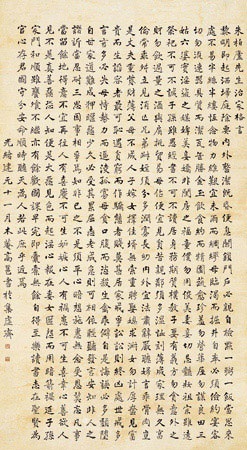 朱柏廬先生治家格言
黎明即起灑掃庭除要內外整潔既昏便息關鎖門戶必親自檢點一粥一飯當思來
處不易半絲半縷恒念物力維艱宜未雨而綢繆毋臨渴而掘井自奉必須儉約宴客
切勿留連器具質而潔瓦缶勝金玉飲食約而精園蔬愈珍饈勿營華屋勿謀良田三
姑六婆實淫盜之媒婢美妾嬌非閨房之福童僕勿用俊美妻妾切忌豔妝祖宗雖遠
祭祀不可不誠子孫雖愚經書不可不讀居身務期質樸教子要有義方勿貪意外之
財勿飲過量之酒與肩挑貿易毋佔便宜見貧苦親鄰須多溫恤刻薄成家理無久享
倫常乖舛立見消亡兄弟叔姪須分多潤寡長幼內外宜法肅辭嚴聽婦言乖骨肉豈
是丈夫重貲財薄父母不成人子嫁女擇佳婿毋索重聘娶媳求淑女勿計厚奩見富
貴而生諂容者最可恥遇貧窮而作驕態者賤莫甚居家戒爭訟訟則終凶處世戒多
言言多必失毋恃勢力而凌逼孤寡毋貪口腹而恣殺生禽乖僻自是悔誤必多頹惰
自甘家道難成狎暱惡少久必受其累屈志老成急則可相依輕聽發言安知非人之
譖訴當忍耐三思因事相爭焉知非我之不是須平心暗想施惠勿念受恩莫忘凡事
當留餘地得意不宜再往人有喜慶不可生妒嫉心人有禍患不可生喜幸心善欲人
見不是真善惡恐人知便是大惡見色而起淫心報在妻女匿怨而用暗箭禍延子孫
家門和順雖饔飧不繼亦有餘歡國課早完即囊橐無餘自得至樂讀書志在聖賢為
官心存君國守分安命順時聽天為人若此庶乎近焉
光緒建元十一月 高邕書於集虛齋